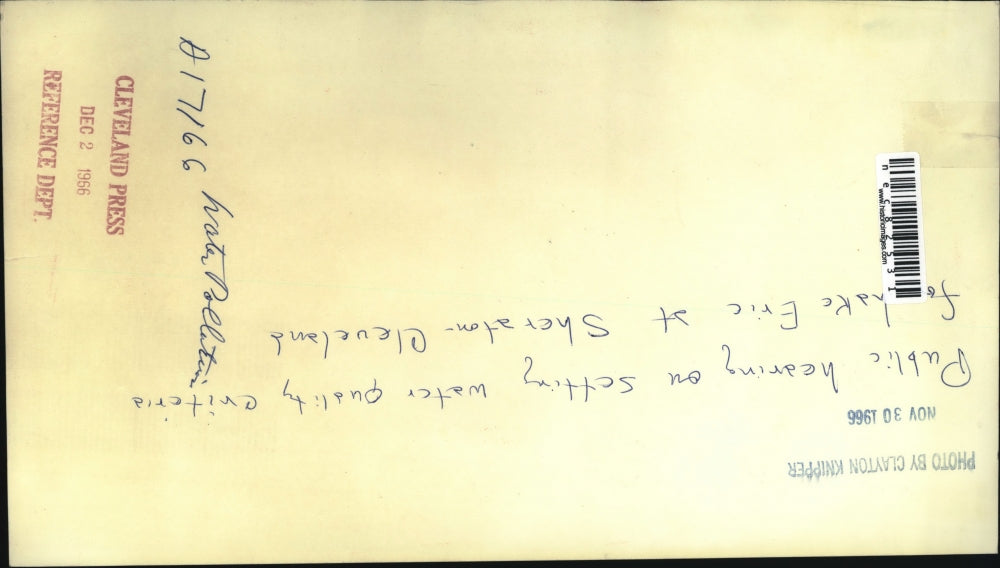 PHOTO BY CLAYTON KNIPPER
NOV 30 1966
Public hearing on setting water quality criteria
for Lake Erie at Sheraton-Cleveland
A17166 Water Pollution
CLEVELAND PRESS
DEC 2 1966
REFERENCE DEPT.
www.historicimages.com
nec82531